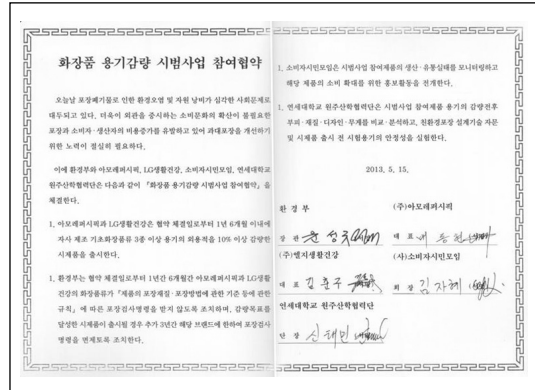 화장품 용기감량 시범사업 참여협약
오늘날 포장폐기물로 인한 환경오염 및 자원 낭비가 심각한 사회문제로
대두되고 있다. 더욱이 외관을 중시하는 소비문화의 확산이 불필요한
포장과 소비자·생산자의 비용증가를 유발하고 있어 과대포장을 개선하기
위한 노력이 절실히 필요하다.
이에 환경부와 아모레퍼시픽, LG생활건강, 소비자시민모임, 연세대학교
원주산학협력단은 다음과 같이 『화장품 용기감량 시범사업 참여협약』을
체결한다.
1. 아모레퍼시픽과 LG생활건강은 협약 체결일로부터 1년 6개월 이내에
자사 제조 기초화장품류 3종 이상 용기의 외용적을 10% 이상 감량한
시제품을 출시한다.
1. 환경부는 협약 체결일로부터 1년간 6개월간 아모레퍼시픽과 LG생활
건강의 화장품류가 『제품의 포장재질·포장방법에 관한 기준 등에 관한
규칙』에 따른 포장검사명령을 받지 않도록 조치하며, 감량목표를
달성한 시제품이 출시될 경우 추가 3년간 해당 브랜드에 한하여 포장검사
명령을 면제토록 조치한다.
1. 소비자시민모임은 시범사업 참여제품의 생산·유통실태를 모니터링하고
해당 제품의 소비 확대를 위한 홍보활동을 전개한다.
1. 연세대학교 원주산학협력단은 시범사업 참여제품 용기의 감량전후
부피·재질·디자인·무게를 비교·분석하고, 친환경포장 설계기술 자문
및 시제품 출시 전 시험용기의 안정성을 실험한다.
2013. 5. 15.
환 경 부 (주)아모레퍼시픽
장 관 윤성 대 표
(주)엘지생활건강 (사)소비자시민모임
대 표 김춘구 회 장 김자혜
연세대학교 원주산학협력단
단 장 신해민